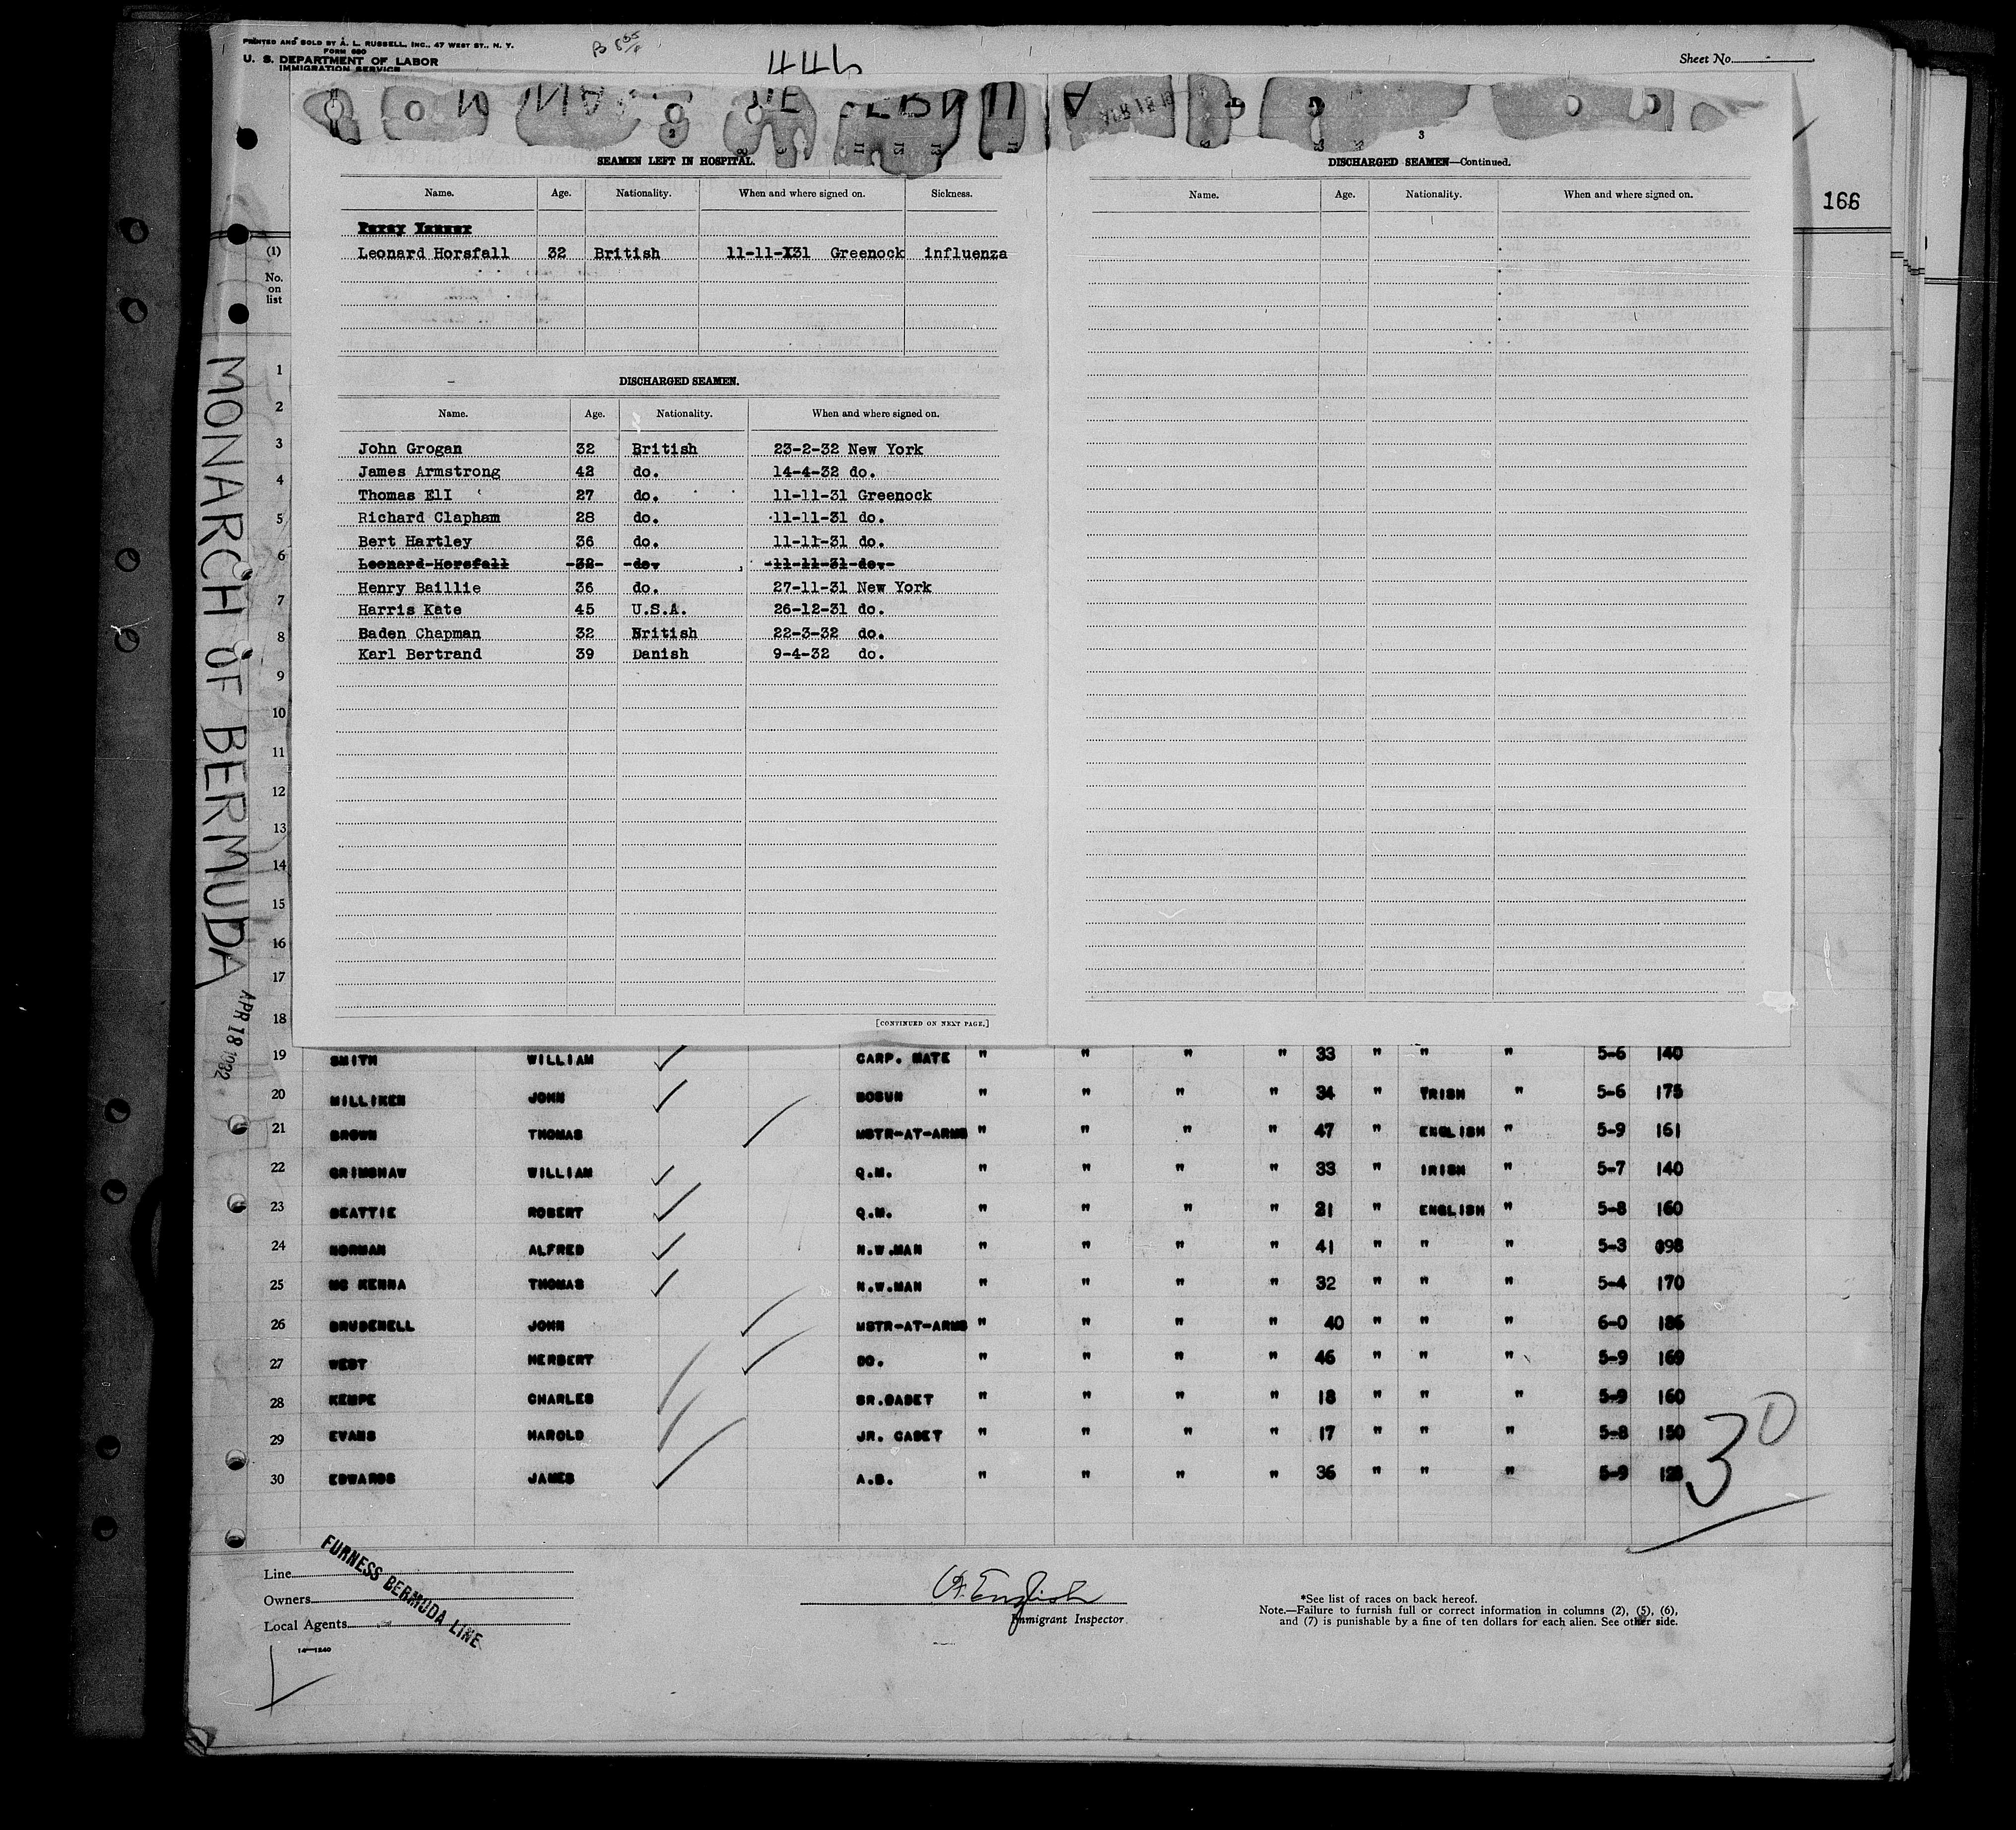 PRINTED AND SOLD BY A. L. RUSSELL, INC., 47 WEST ST., N. Y.
FORM 680
U. S. DEPARTMENT OF LABOR
IMMIGRATION SERVICE
446
Sheet No.
166
MONARCH OF BERMUDA
APR 18 1932
3
SEAMEN LEFT IN HOSPITAL.
Name. Age. Nationality. When and where signed on. Sickness.
Leonard Horsfall 32 British 11-11-31 Greenock influenza
DISCHARGED SEAMEN.
Name. Age. Nationality. When and where signed on.
John Grogan 32 British 23-2-32 New York
James Armstrong 42 do. 14-4-32 do.
Thomas Ell 27 do. 11-11-31 Greenock
Richard Clapham 28 do. 11-11-31 do.
Bert Hartley 36 do. 11-11-31 do.
Leonard Horsfall 32 do. 11-11-31 do.
Henry Baillie 36 do. 27-11-31 New York
Harris Kate 45 U.S.A. 26-12-31 do.
Baden Chapman 32 British 22-3-32 do.
Karl Bertrand 39 Danish 9-4-32 do.
[CONTINUED ON NEXT PAGE.]
3
DISCHARGED SEAMEN—Continued.
Name. Age. Nationality. When and where signed on.
(1)
No.
on
list
1
2
3
4
5
6
7
8
9
10
11
12
13
14
15
16
17
18
19 SMITH WILLIAM CARP. MATE " " " " 33 " " " 5-6 140
20 MILLIKEN JOHN BOSUN " " " " 34 " IRISH " 5-6 175
21 BROWN THOMAS MSTR-AT-ARMS " " " " 47 " ENGLISH " 5-9 161
22 GRIMSHAW WILLIAM Q.M. " " " " 33 " IRISH " 5-7 140
23 BEATTIE ROBERT Q.M. " " " " 21 " ENGLISH " 5-8 160
24 NORMAN ALFRED N.W.MAN " " " " 41 " " " 5-3 098
25 MC KENNA THOMAS N.W.MAN " " " " 32 " " " 5-4 170
26 BRUDENELL JOHN MSTR-AT-ARMS " " " " 40 " " " 6-0 186
27 WEST HERBERT DO. " " " " 46 " " " 5-9 169
28 KEMPE CHARLES SR.CADET " " " " 18 " " " 5-9 160
29 EVANS HAROLD JR. CADET " " " " 17 " " " 5-8 150
30 EDWARDS JAMES A.B. " " " " 36 " " " 5-9 128
30
Line
Owners
Local Agents
FURNESS BERMUDA LINE
14—1240
English
Immigrant Inspector.
*See list of races on back hereof.
Note.—Failure to furnish full or correct information in columns (2), (5), (6),
and (7) is punishable by a fine of ten dollars for each alien. See other side.